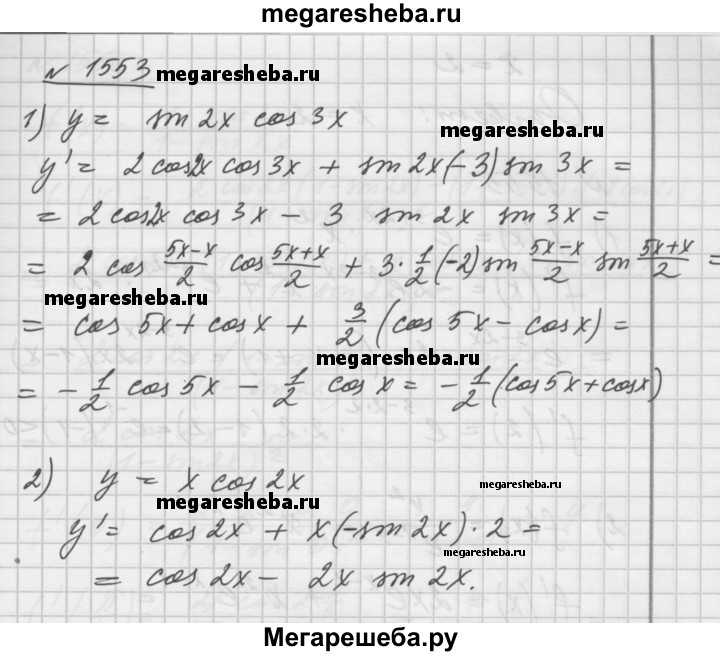 megaresheba.ru
№ 1553 megaresheba.ru
1) y = sin 2x cos 3x
megaresheba.ru
y' = 2 cos2x cos 3x + sin 2x(-3) sin 3x =
= 2 cos2x cos 3x - 3 sin 2x sin 3x =
= 2 cos (5x-x)/2 cos (5x+x)/2 + 3·1/2 (-2) sin (5x-x)/2 sin (5x+x)/2 =
megaresheba.ru
= cos 5x + cos x + 3/2 (cos 5x - cos x) =
megaresheba.ru
= -1/2 cos 5x - 1/2 cos x = -1/2 (cos 5x + cos x)
2) y = x cos 2x
megaresheba.ru
megaresheba.ru
y' = cos 2x + x(-sin 2x)·2 =
megaresheba.ru
= cos 2x - 2x sin 2x.
Мегарешеба.ру